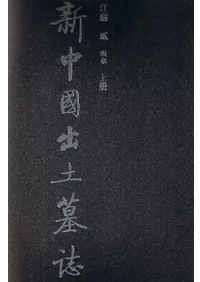 江蘇 貳 南京 上册
新中國出土墓誌